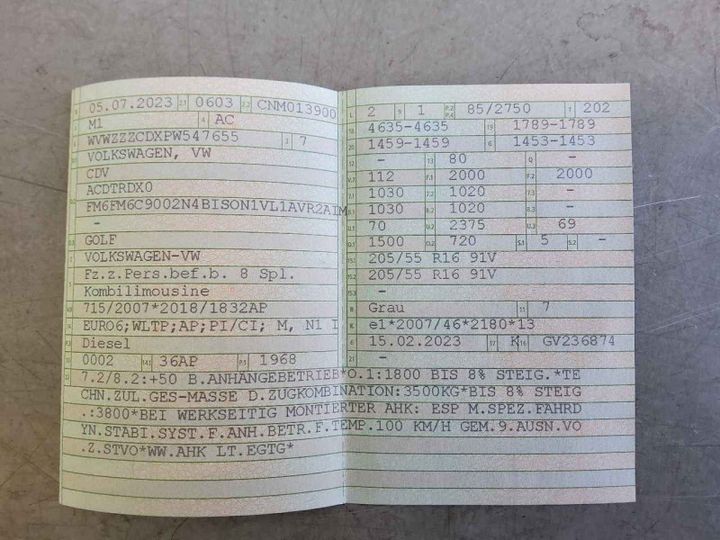 05.07.2023 0603 CNM013900
M1 AC
WVWZZZCDXPW547655 7
VOLKSWAGEN, VW
CDV
ACDTRDX0
FM6FM6C9002N4BISON1VL1AVR2AIM
-
GOLF
VOLKSWAGEN-VW
Fz.z.Pers.bef.b. 8 Spl.
Kombilimousine
715/2007*2018/1832AP
EURO6;WLTP;AP;PI/CI; M, N1 I
Diesel
0002 36AP 1968
7.2/8.2:+50 B.ANHÄNGEBETRIEB*O.1:1800 BIS 8% STEIG.*TE
CHN.ZUL.GES-MASSE D.ZUGKOMBINATION:3500KG*BIS 8% STEIG
.:3800*BEI WERKSEITIG MONTIERTER AHK: ESP M.SPEZ.FAHRD
YN.STABI.SYST.F.ANH.BETR.F.TEMP.100 KM/H GEM.9.AUSN.VO
.Z.STVO*WW.AHK LT.EGTG*
2 1 85/2750 202
4635-4635 1789-1789
1459-1459 1453-1453
- 80 -
112 2000 2000
1030 1020 -
1030 1020 -
70 2375 69
1500 720 5 -
205/55 R16 91V
205/55 R16 91V
-
Grau 7
e1*2007/46*2180*13
15.02.2023 K GV236874
-